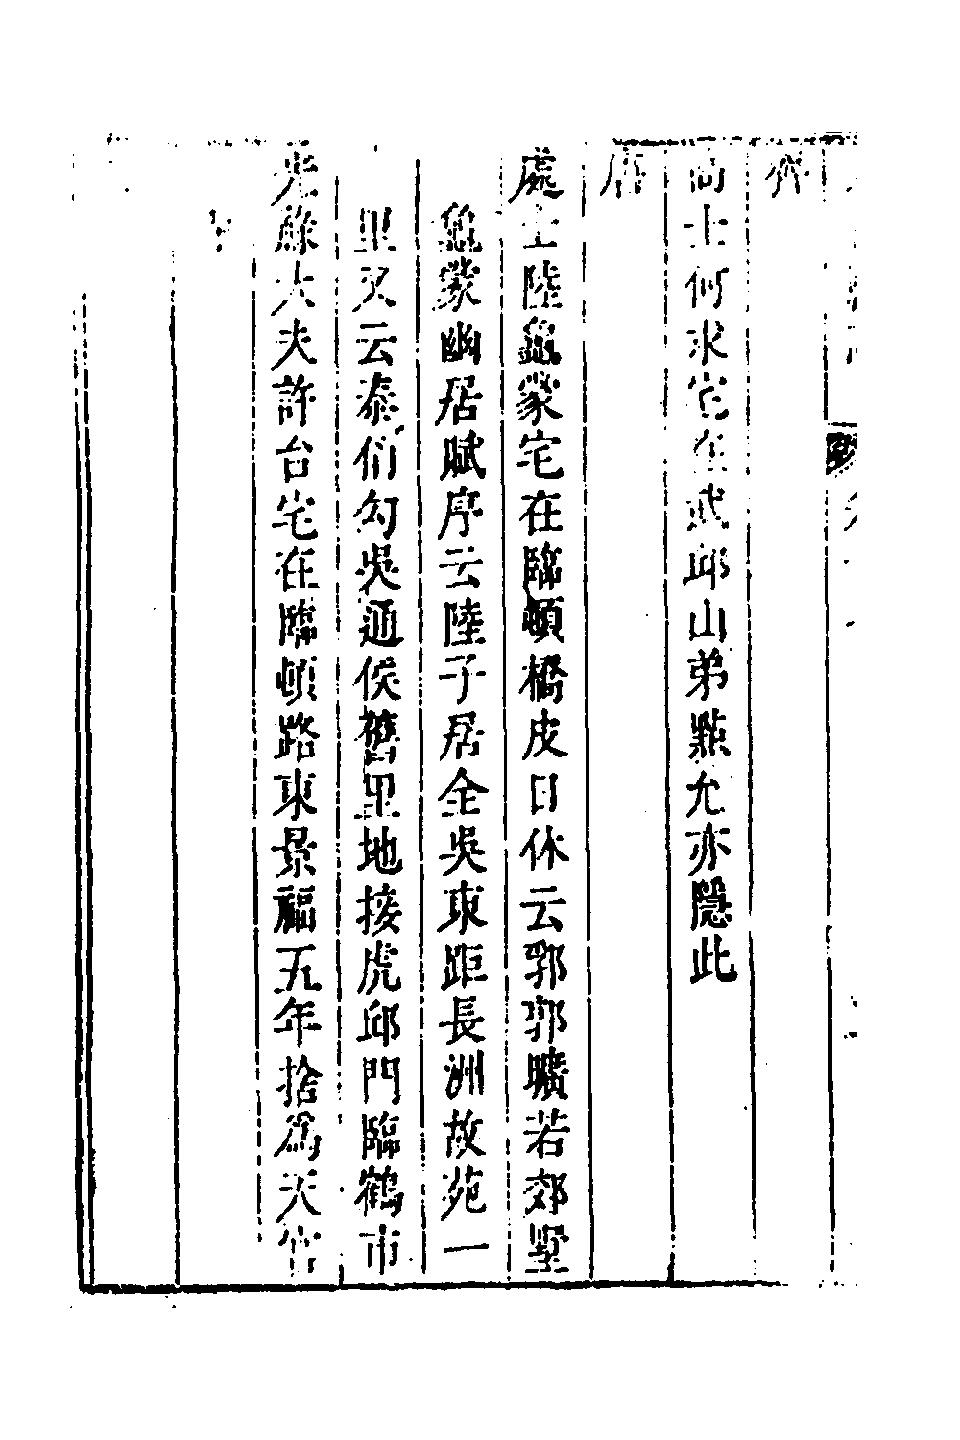 齊
高士何求宅在武邱山弟點允亦隱此
唐
處士陸龜蒙宅在臨頓橋皮日休云郛郭曠若郊墅
龜蒙幽居賦序云陸子居全吳東距長洲故苑一
里又云泰伯勾吳通侯舊里地接虎邱門臨鶴市
光祿大夫許台宅在臨頓路東景福五年捨爲天宮